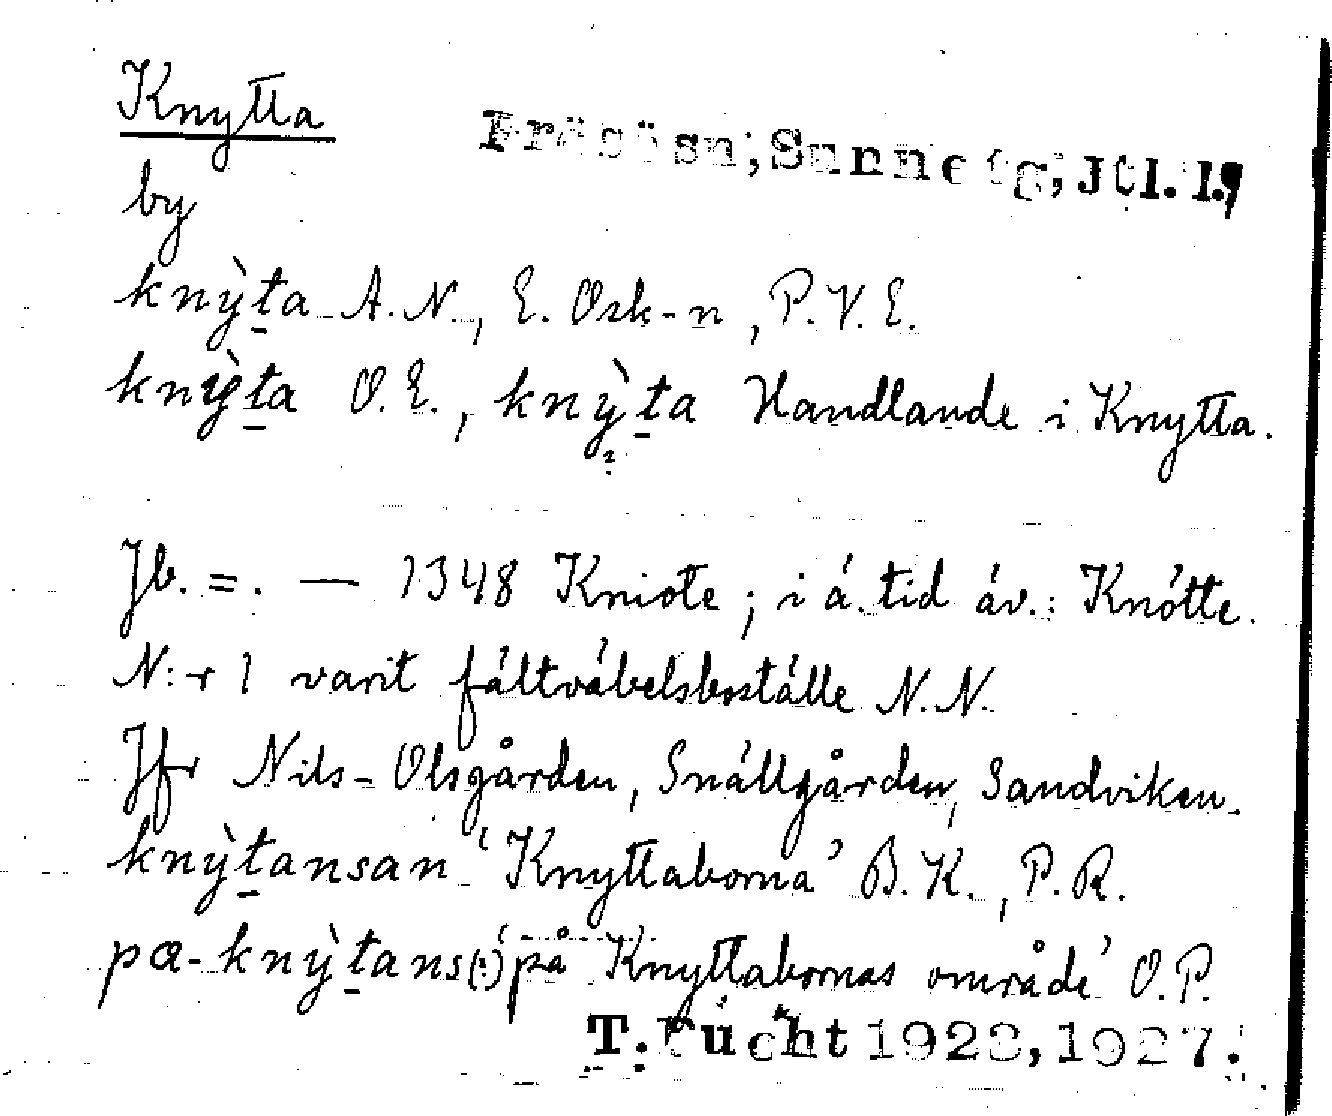 Knytta
Frösösn, Sunne tg, Jtl. l.,
by
knỳṯa A.N., E. Osk-n, P.V.E.
knỳṯa O.E., knỳṯa Handlande i Knytta.
Jb. =. — 1348 Kniote; i á. tid áv.: Knótte.
N:r 1 varit fáltvábelsbostálle N.N.
Jfr Nils-Olsgården, Snállgården, Sandviken.
knỳṯansan ‘Knyttaborna’ B.K., P.R.
pα-knỳṯans(:) ‘på Knyttabornas område’ O.P.
T. Fúcht 1922, 1927.